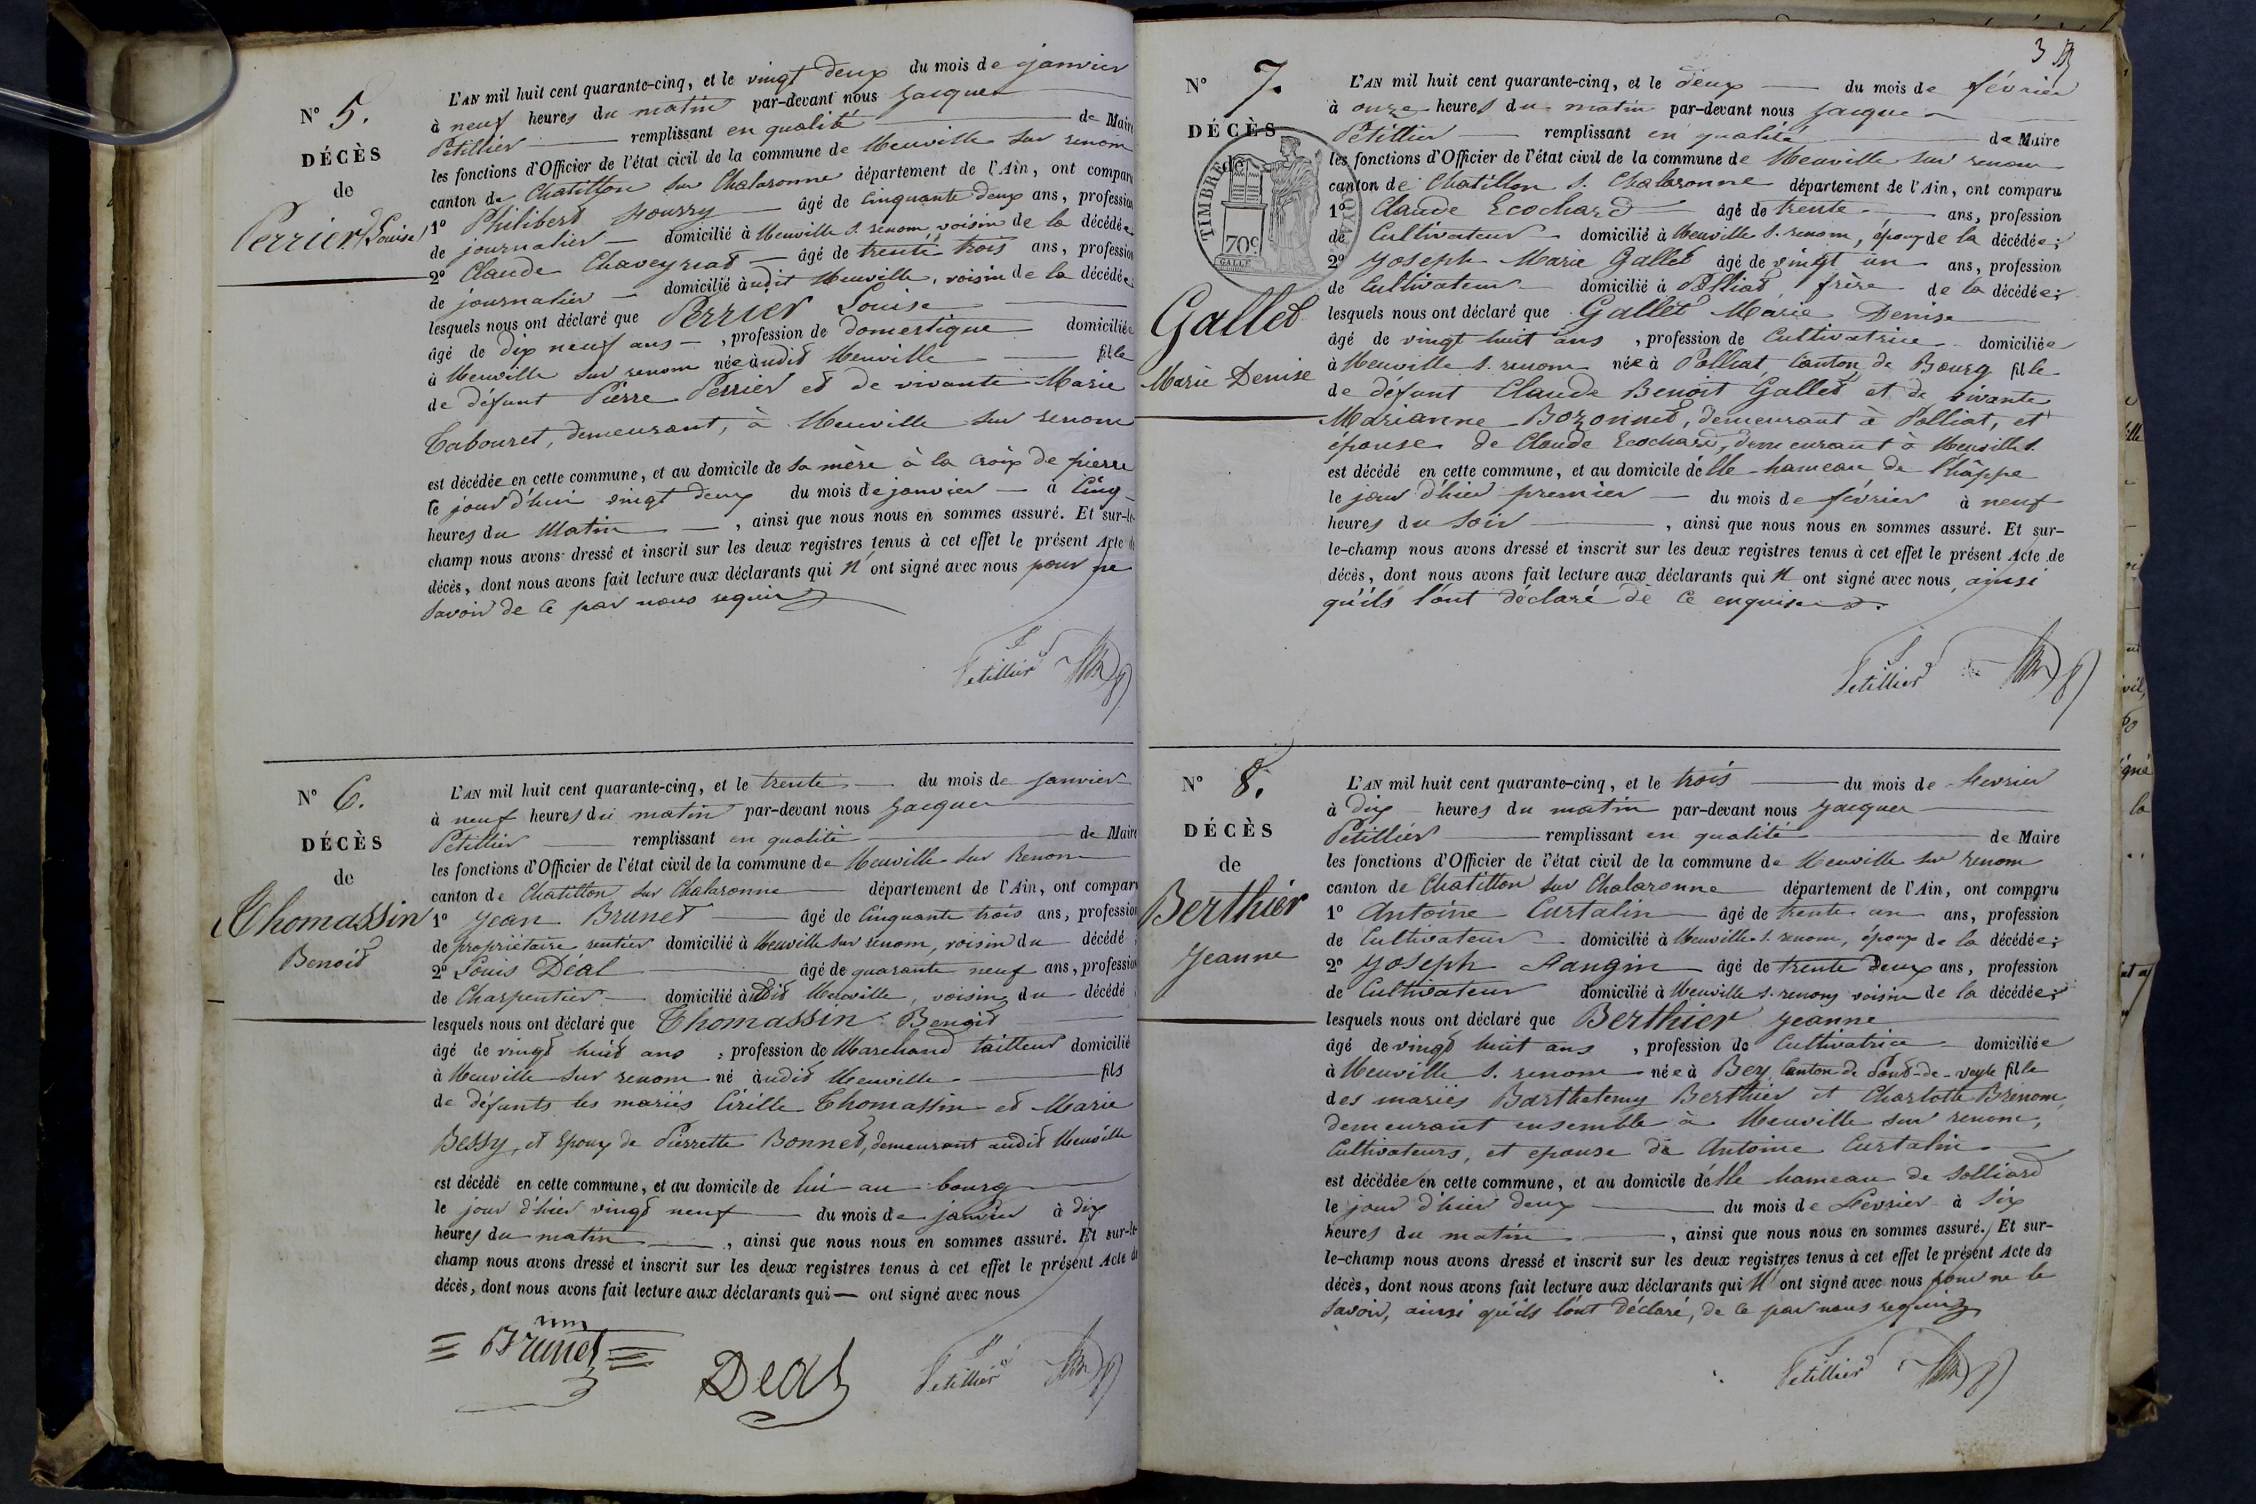 N° 5.
DÉCÈS
de
Perrier (Louise)
L'AN mil huit cent quarante-cinq, et le vingt deux du mois de janvier
à neuf heures du matin par-devant nous Jacques
Petillier remplissant en qualité de Maire
les fonctions d'Officier de l'état civil de la commune de Neuville sur renom
canton de Chatillon sur Chalaronne département de l'Ain, ont comparu
1° Philibert âgé de Cinquante deux ans, profession
de journalier domicilié à Neuville s. renom, voisin de la décédée
2° Claude Chaveyriat âgé de trente trois ans, profession
de journalier domicilié audit Neuville, voisin de la décédée
lesquels nous ont déclaré que Perrier Louise
âgé de dix neuf ans, profession de domestique domiciliée
à Neuville sur renom née audit Neuville fille
de défunt Pierre Perrier et de vivante Marie
Tabouret, demeurant, à Neuville sur renom
est décédée en cette commune, et au domicile de sa mère à la croix de pierre
le jour d'hui vingt deux du mois de janvier à Cinq
heures du Matin, ainsi que nous nous en sommes assuré. Et sur-le-
champ nous avons dressé et inscrit sur les deux registres tenus à cet effet le présent Acte de
décès, dont nous avons fait lecture aux déclarants qui n'ont signé avec nous pour ne
savoir de ce par nous requis
Petillier
N° 6.
DÉCÈS
de
Thomassin
Benoit
L'AN mil huit cent quarante-cinq, et le trente du mois de janvier
à neuf heures du matin par-devant nous Jacques
Petillier remplissant en qualité de Maire
les fonctions d'Officier de l'état civil de la commune de Neuville sur Renom
canton de Chatillon sur Chalaronne département de l'Ain, ont comparu
1° Jean Brunet âgé de Cinquante trois ans, profession
de propriétaire rentier domicilié à Neuville sur renom, voisin du décédé
2° Louis Déal âgé de quarante neuf ans, profession
de Charpentier domicilié audit Neuville, voisin du décédé
lesquels nous ont déclaré que Thomassin Benoit
âgé de vingt huit ans, profession de Marchand tailleur domicilié
à Neuville sur renom né audit Neuville fils
de défunts les mariés Cirille Thomassin et Marie
Bessy, et Epoux de Pierrette Bonnet, demeurant audit Neuville
est décédé en cette commune, et au domicile de lui au bourg
le jour d'hier vingt neuf du mois de janvier à dix
heures du matin, ainsi que nous nous en sommes assuré. Et sur-le-
champ nous avons dressé et inscrit sur les deux registres tenus à cet effet le présent Acte de
décès, dont nous avons fait lecture aux déclarants qui — ont signé avec nous
Brunet
Deal
Petillier
3
N° 7.
DÉCÈS
de
TIMBRE ROYAL
70c
GALLE
Gallet
Marie Denise
L'AN mil huit cent quarante-cinq, et le deux du mois de février
à onze heures du matin par-devant nous Jacques
Petillier remplissant en qualité de Maire
les fonctions d'Officier de l'état civil de la commune de Neuville sur renom
canton de Chatillon s. Chalaronne département de l'Ain, ont comparu
1° Claude Ecochard âgé de trente ans, profession
de Cultivateur domicilié à Neuville s. renom, époux de la décédée;
2° Joseph Marie Gallet âgé de vingt un ans, profession
de Cultivateur domicilié à Polliat, frère de la décédée;
lesquels nous ont déclaré que Gallet Marie Denise
âgé de vingt huit ans, profession de Cultivatrice domiciliée
à Neuville s. renom née à Polliat, Canton de Bourg fille
de défunt Claude Benoit Gallet et de vivante
Marianne Bozonnet, demeurant à Polliat, et
épouse de Claude Ecochard, demeurant à Neuville s.
est décédé en cette commune, et au domicile d'elle hameau de Châppe
le jour d'hier premier du mois de février à neuf
heures du soir, ainsi que nous nous en sommes assuré. Et sur-
le-champ nous avons dressé et inscrit sur les deux registres tenus à cet effet le présent Acte de
décès, dont nous avons fait lecture aux déclarants qui n'ont signé avec nous, ainsi
qu'ils l'ont déclaré de ce enquis.
Petillier
N° 8.
DÉCÈS
de
Berthier
Jeanne
L'AN mil huit cent quarante-cinq, et le trois du mois de Fevrier
à dix heures du matin par-devant nous Jacques
Petillier remplissant en qualité de Maire
les fonctions d'Officier de l'état civil de la commune de Neuville sur renom
canton de Chatillon sur Chalaronne département de l'Ain, ont comparu
1° Antoine Curtalin âgé de trente un ans, profession
de Cultivateur domicilié à Neuville s. renom, époux de la décédée;
2° Joseph Sangin âgé de trente deux ans, profession
de Cultivateur domicilié à Neuville s. renom, voisin de la décédée;
lesquels nous ont déclaré que Berthier Jeanne
âgé de vingt huit ans, profession de Cultivatrice domiciliée
à Neuville s. renom née à Bey, Canton de Pont-de-veyle fille
des mariés Barthelemy Berthier et Charlotte Brenom,
demeurant ensemble à Neuville sur renom,
Cultivateurs, et epouse de Antoine Curtalin
est décédée en cette commune, et au domicile d'elle hameau de Solliard
le jour d'hier deux du mois de Fevrier à six
heures du matin, ainsi que nous nous en sommes assuré. Et sur-
le-champ nous avons dressé et inscrit sur les deux registres tenus à cet effet le présent Acte de
décès, dont nous avons fait lecture aux déclarants qui n'ont signé avec nous pour ne le
savoir, ainsi qu'ils l'ont déclaré, de ce par nous requis
Petillier